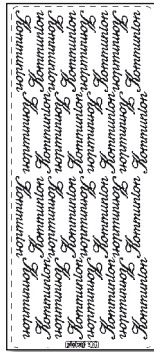 Kommunion Kommunion Kommunion Kommunion
Kommunion Kommunion Kommunion Kommunion
Kommunion Kommunion Kommunion Kommunion
Kommunion Kommunion Kommunion Kommunion
Kommunion Kommunion Kommunion Kommunion
Kommunion Kommunion Kommunion Kommunion
Kommunion Kommunion Kommunion Kommunion